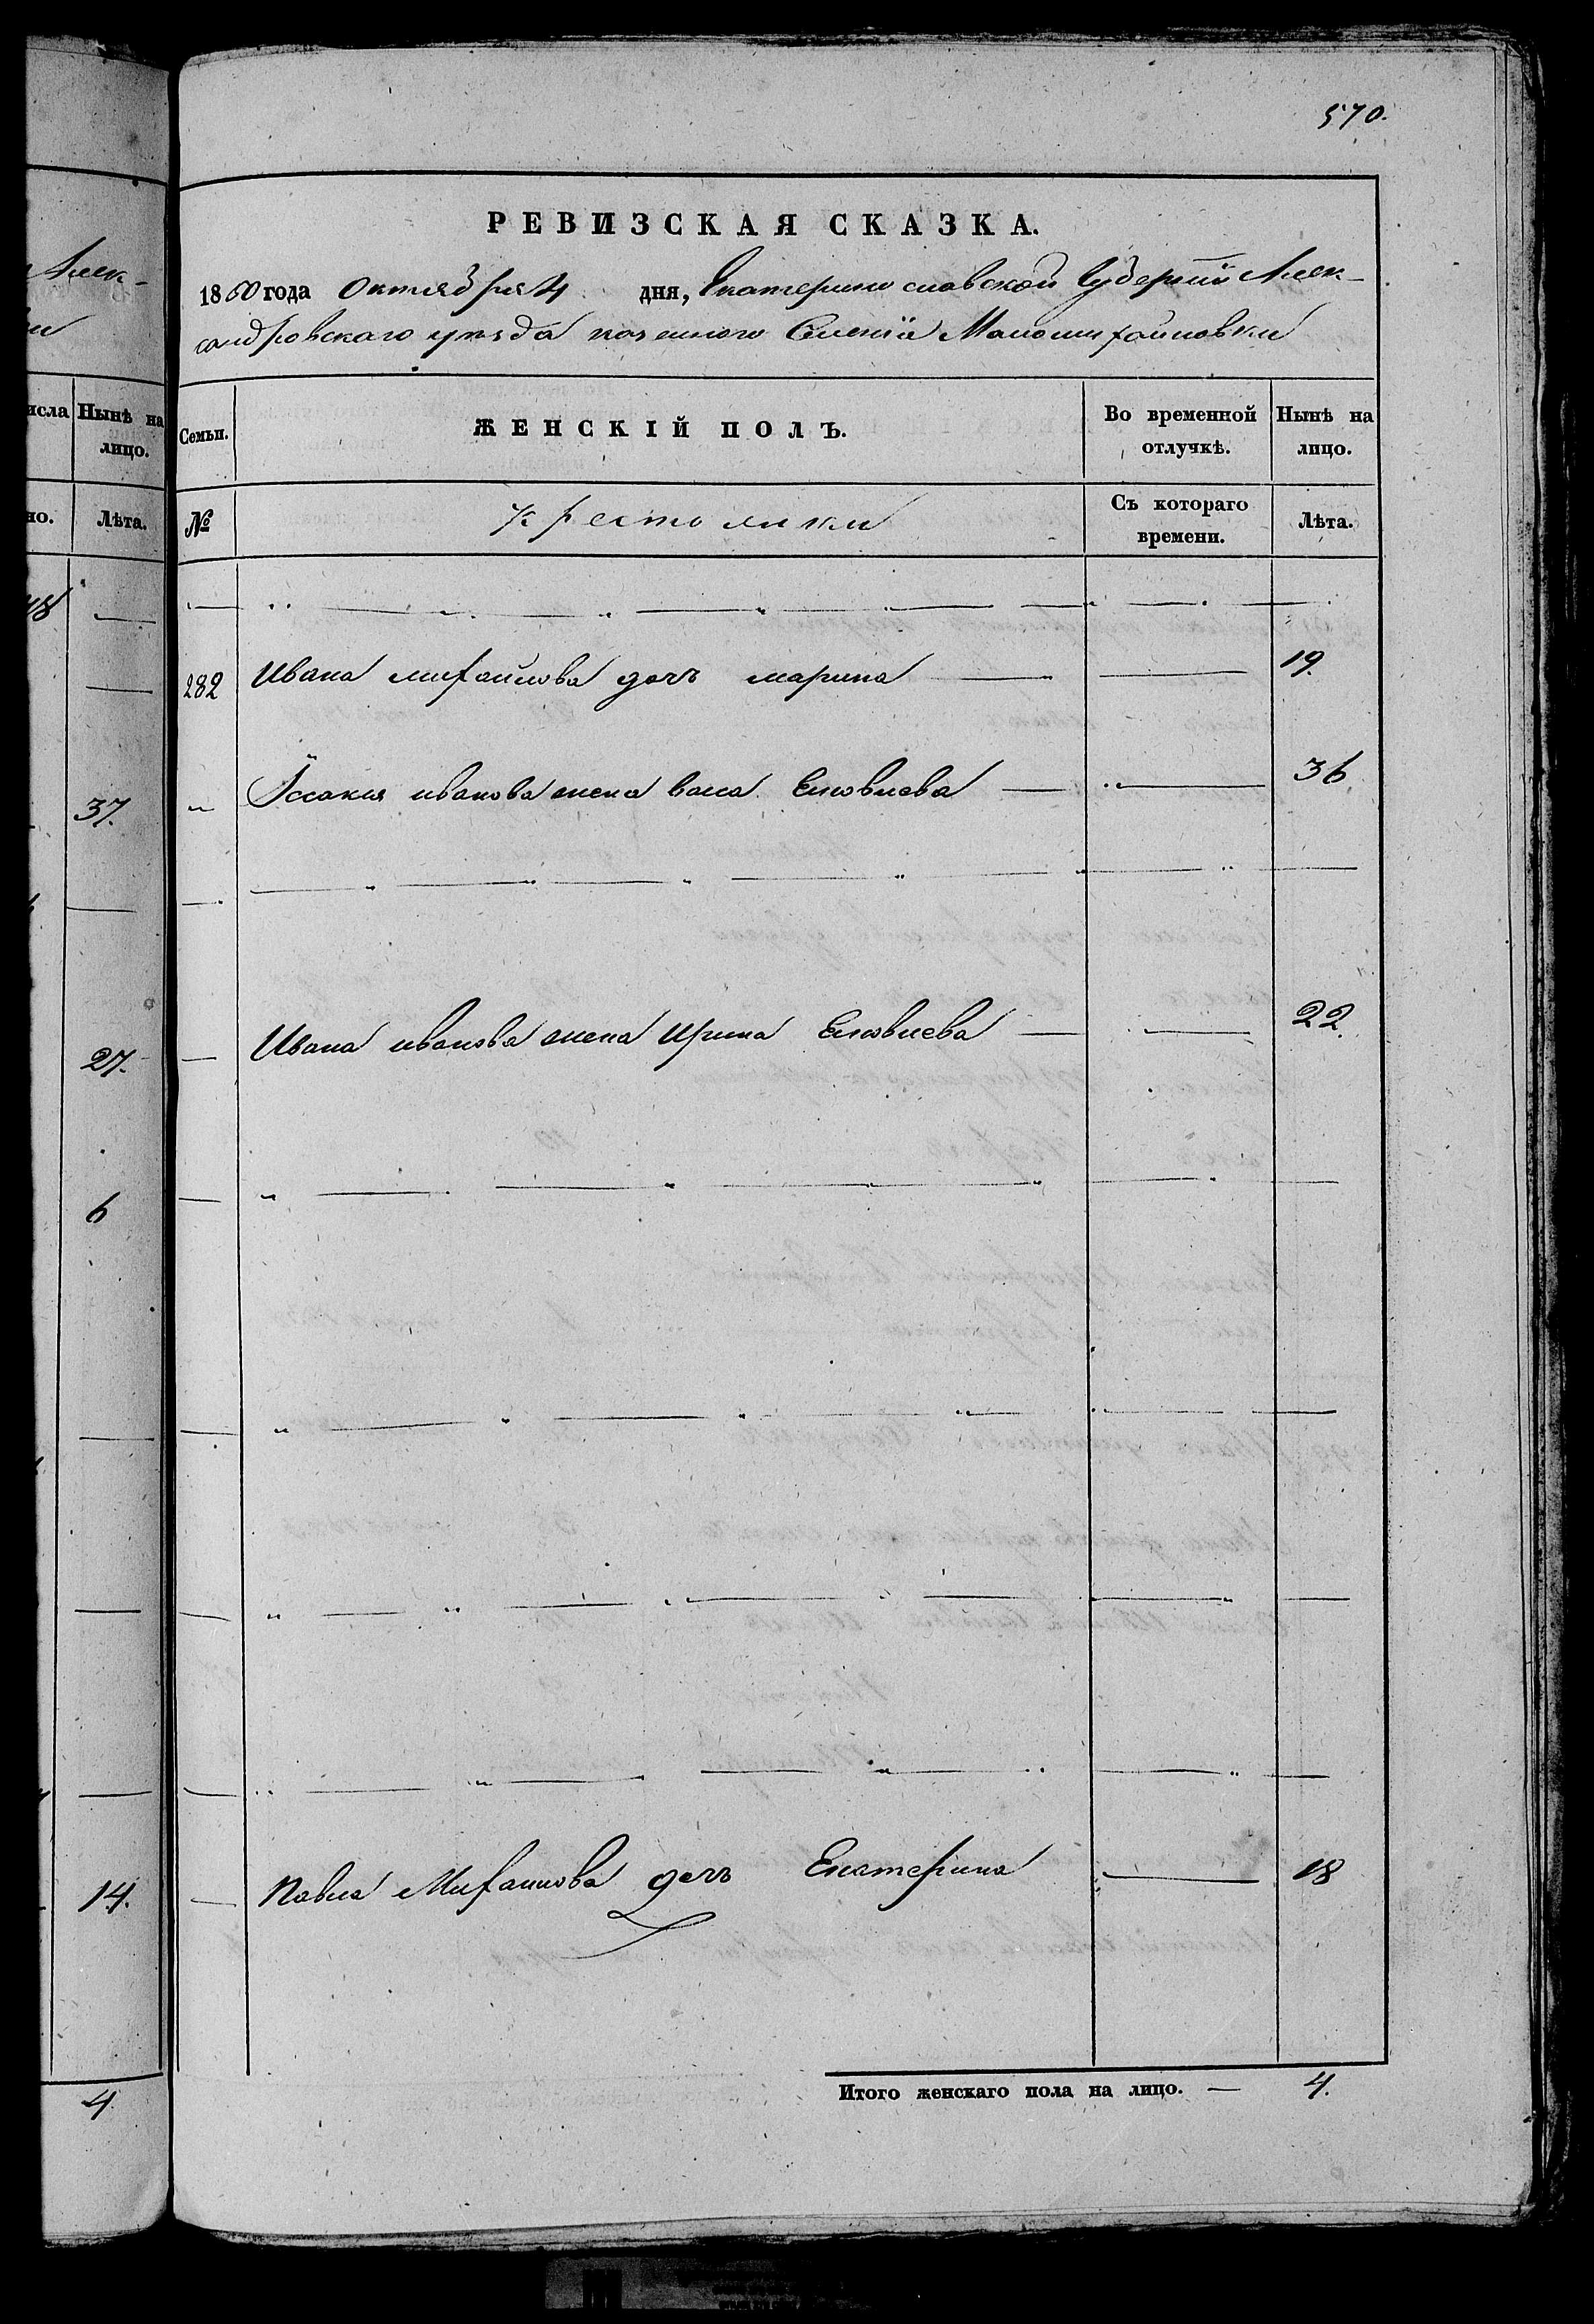 570.
Алек-
РЕВИЗСКАЯ СКАЗКА.
1860 года Октября 4 дня, Екатеринославской Губерніи Алек-
сандровскаго уезда казенного Селенія Маломихайловки
исла Нынѣ на лицо.
но. Лѣта.
Семьи. ЖЕНСКІЙ ПОЛЪ. Во временной отлучкѣ. Нынѣ на лицо.
№ Крестьянки Съ котораго времени. Лѣта.
282 Ивана михайлова дочъ марина — — 19.
37. " Іссакия иванова жена Васа Ековлева — — 36
27. — Ивана иванова жена Ирина Ековлева — — 22.
6
14. — Павла Михаилова дочъ Екатерина — 18
4. Итого женскаго пола на лицо. — 4.